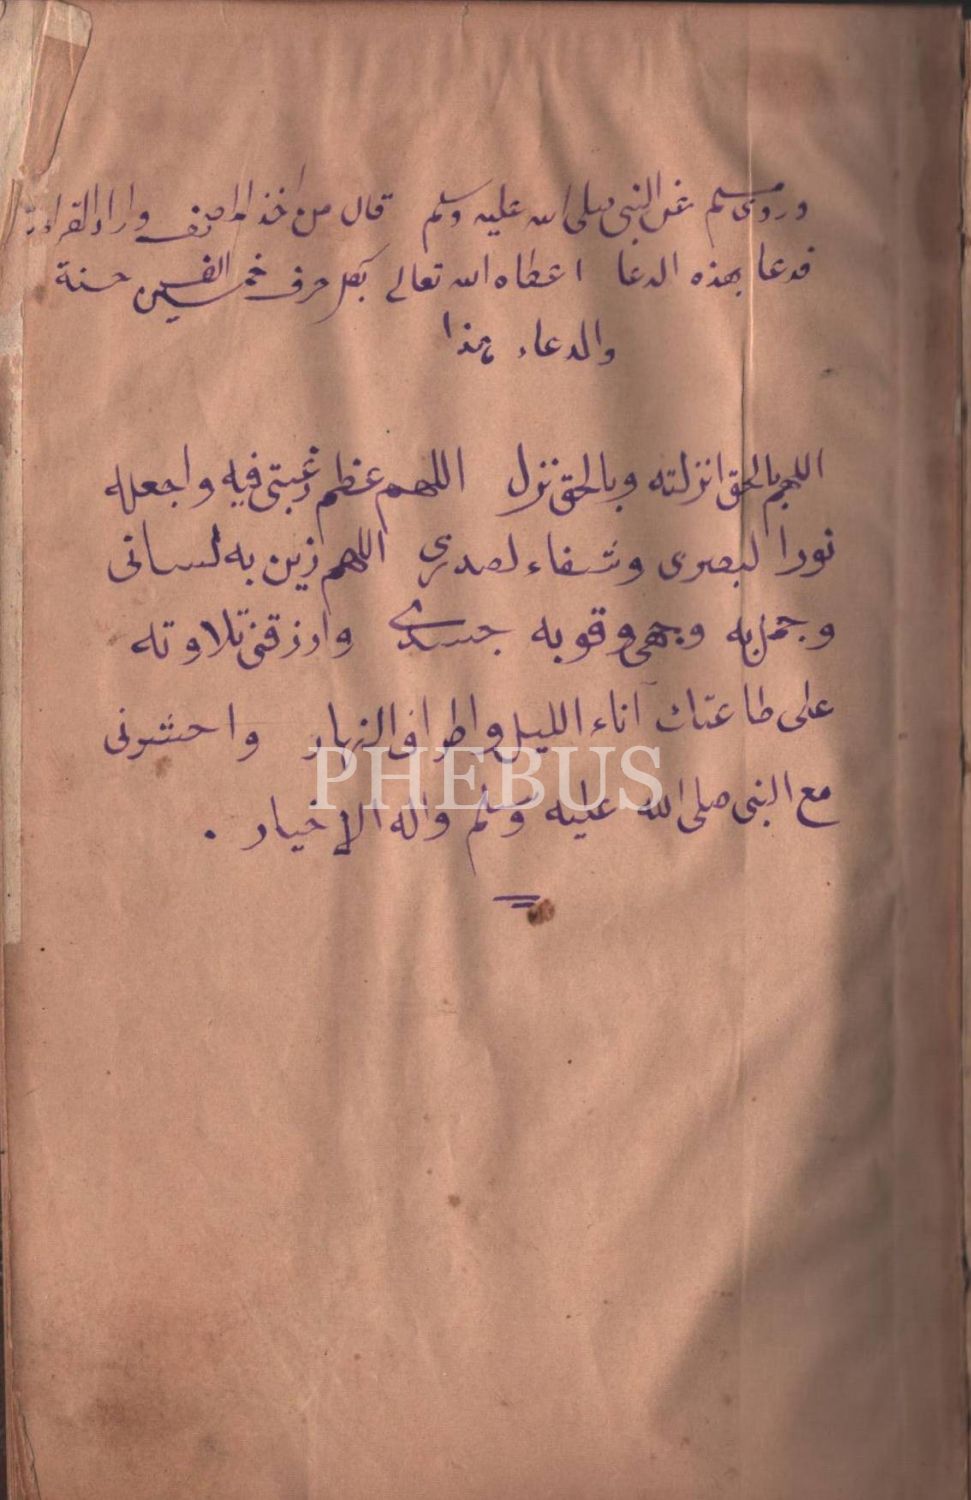 وروى مسلم عن النبى صلى الله عليه وسلم قال من اخذ المصحف واراد القراءة
فدعا بهذه الدعا اعطاه الله تعالى بكل حرف خمسين الف حسنة
والدعاء هذا
اللهم بالحق انزلته وبالحق نزل اللهم عظم رغبتى فيه واجعله
نورا لبصرى وشفاء لصدرى اللهم زين به لسانى
وجمل به وجهى وقو به جسدى وارزقنى تلاوته
على طاعتك آناء الليل واطراف النهار واحشرنى
مع النبى صلى الله عليه وسلم وآله الاخيار .
PHEBUS